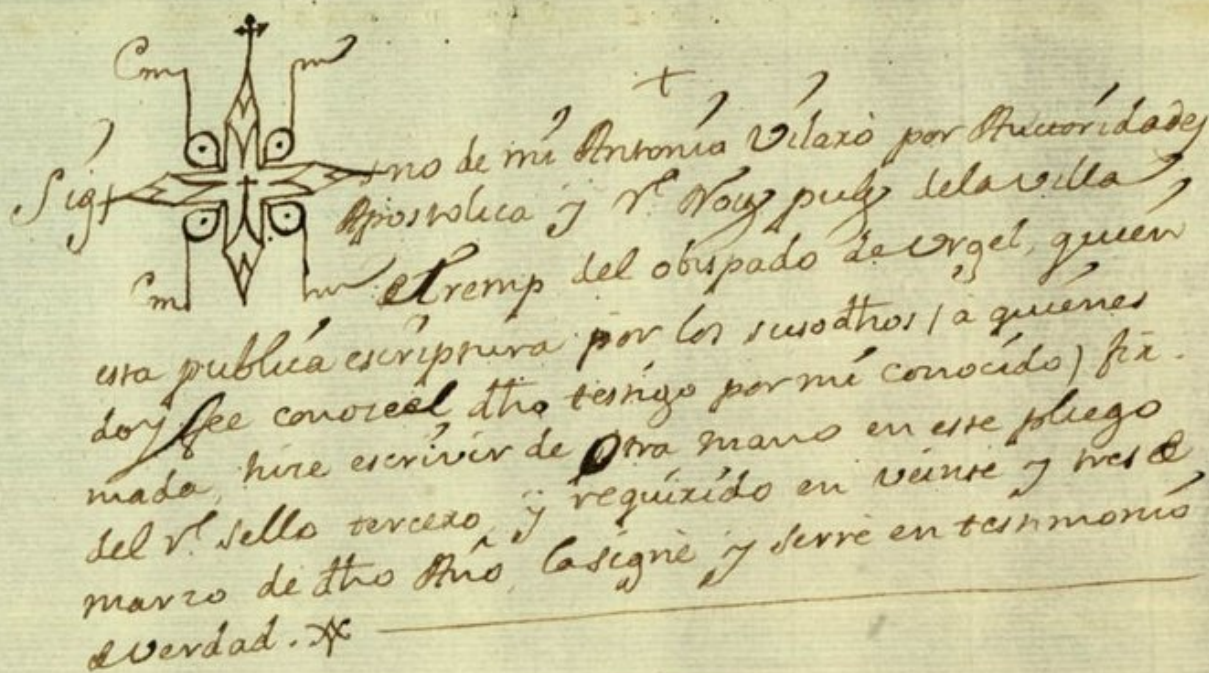 Sig+no de mi Antonio Vilaró por Autoridades
Apostolica y Rl. Noty publ dela villa
de Tremp del obispado de Urgel, quien
esta publica escriptura por los susodhos (a quienes
doy fee conoce el dho testigo por mi conocido) fir-
mada, hize escrivir de otra mano en este pliego
del rl. sello tercero, y requirido en veinte y tres de
marzo de dho Año, la signé y serré en testimonio
de verdad.